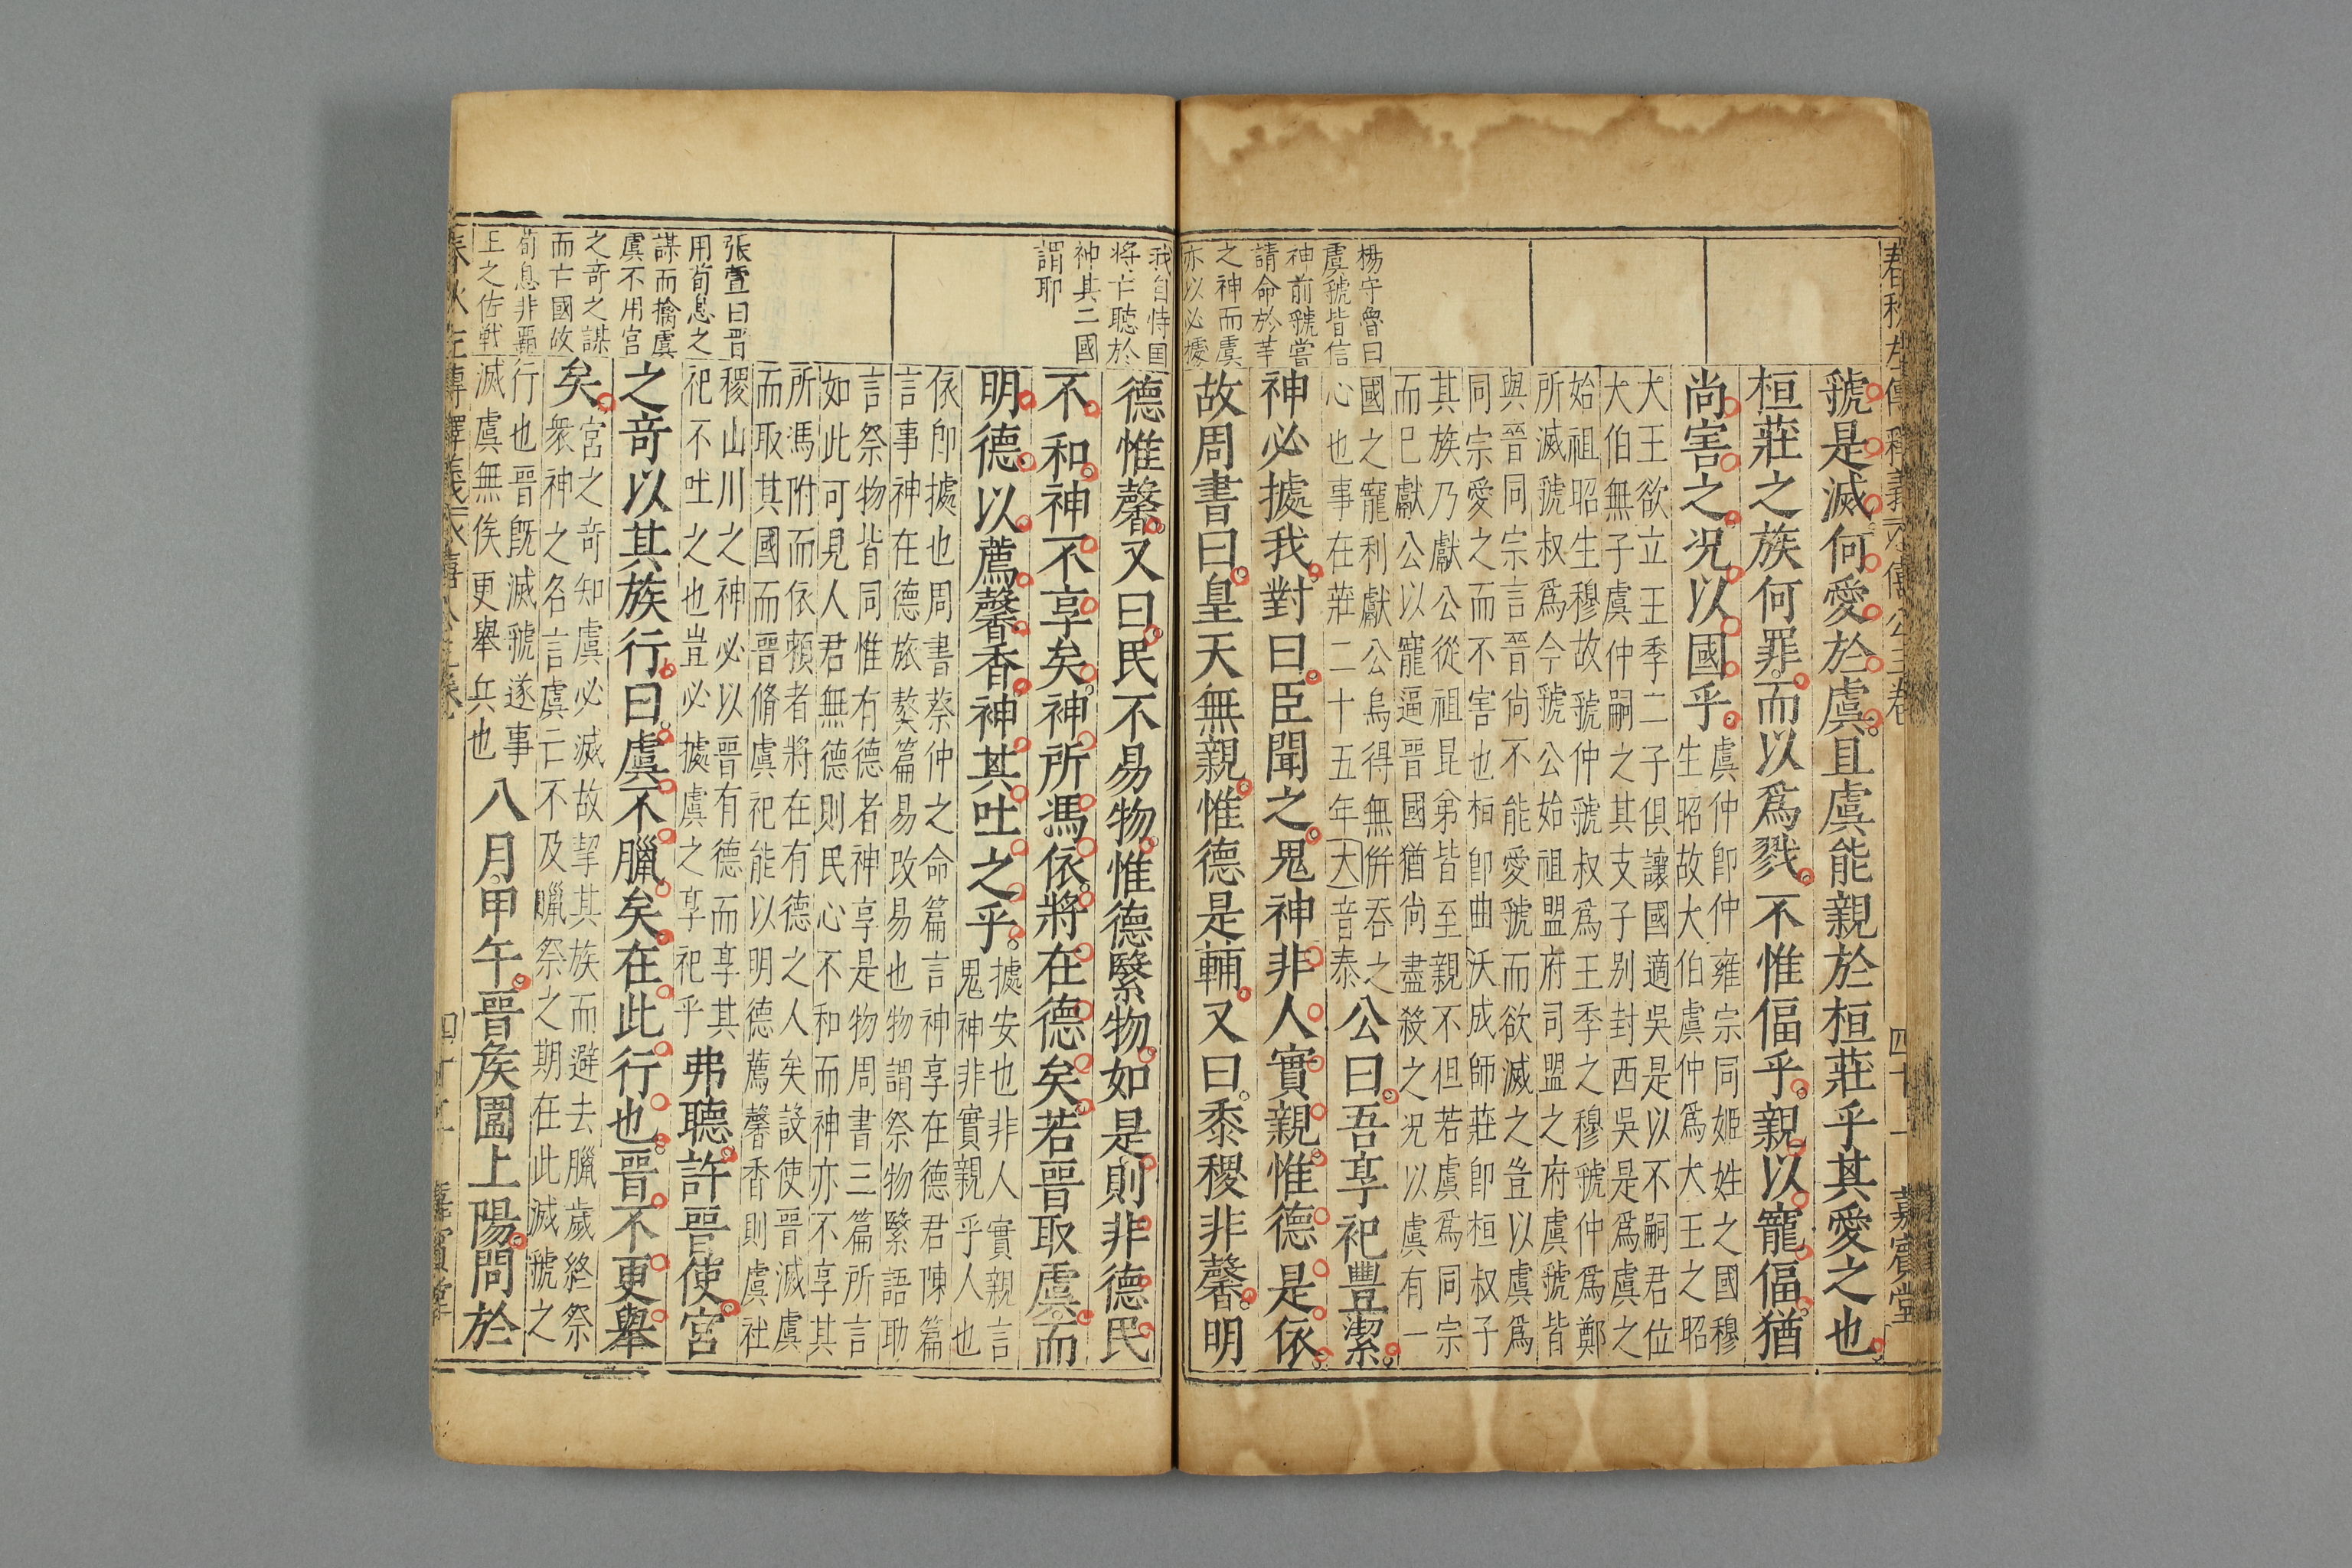 春秋左傳釋義 僖公三卷 四十一 嘉賓堂
楊守魯曰
虞虢皆信
神前虢嘗
請命於莘
之神而虞
亦以必據
虢是滅何愛於虞且虞能親於桓莊乎其愛之也
桓莊之族何罪而以爲戮不惟偪乎親以寵偪猶
尚害之況以國乎
虞仲卽仲雍宗同姬姓之國穆
生昭故大伯虞仲爲大王之昭
大王欲立王季二子俱讓國適吳是以不嗣君位
大伯無子虞仲嗣之其支子别封西吳是爲虞之
始祖昭生穆故虢仲虢叔爲王季之穆虢仲爲鄭
所滅虢叔爲今虢公始祖盟府司盟之府虞虢皆
與晉同宗言晉尙不能愛虢而欲滅之豈以虞爲
同宗愛之而不害也桓卽曲沃成師莊卽桓叔子
其族乃獻公從祖昆弟皆至親不但若虞爲同宗
而已獻公以寵逼晉國猶尙盡殺之況以虞有一
國之寵利獻公烏得無倂吞之
心也事在莊二十五年大音泰
公曰吾享祀豐潔
神必據我對曰臣聞之鬼神非人實親惟德是依
故周書曰皇天無親惟德是輔又曰黍稷非馨明
我自恃国
將亡聽於
神其二國
謂耶
張萱曰晉
用荀息之
謀而擒虞
虞不用宮
之奇之謀
而亡國故
荀息非霸
王之佐戰
德惟馨又曰民不易物惟德繄物如是則非德民
不和神不享矣神所馮依將在德矣若晉取虞而
明德以薦馨香神其吐之乎
據安也非人實親言
鬼神非實親乎人也
依卽據也周書蔡仲之命篇言神享在德君陳篇
言事神在德旅獒篇易改易也物謂祭物繄語助
言祭物皆同惟有德者神享是物周書三篇所言
如此可見人君無德則民心不和而神亦不享其
所馮附而依賴者將在有德之人矣設使晉滅虞
而取其國而晉脩虞祀能以明德薦馨香則虞社
稷山川之神必以晉有德而享其
祀不吐之也豈必據虞之享祀乎
弗聽許晉使宮
之奇以其族行曰虞不臘矣在此行也晉不更舉
矣
宮之奇知虞必滅故挈其族而避去臘歲終祭
衆神之名言虞亡不及臘祭之期在此滅虢之
行也晉既滅虢遂事
滅虞無俟更舉兵也
八月甲午晉矦圍上陽問於
春秋左傳釋義 僖公三卷 四十二 嘉賓堂